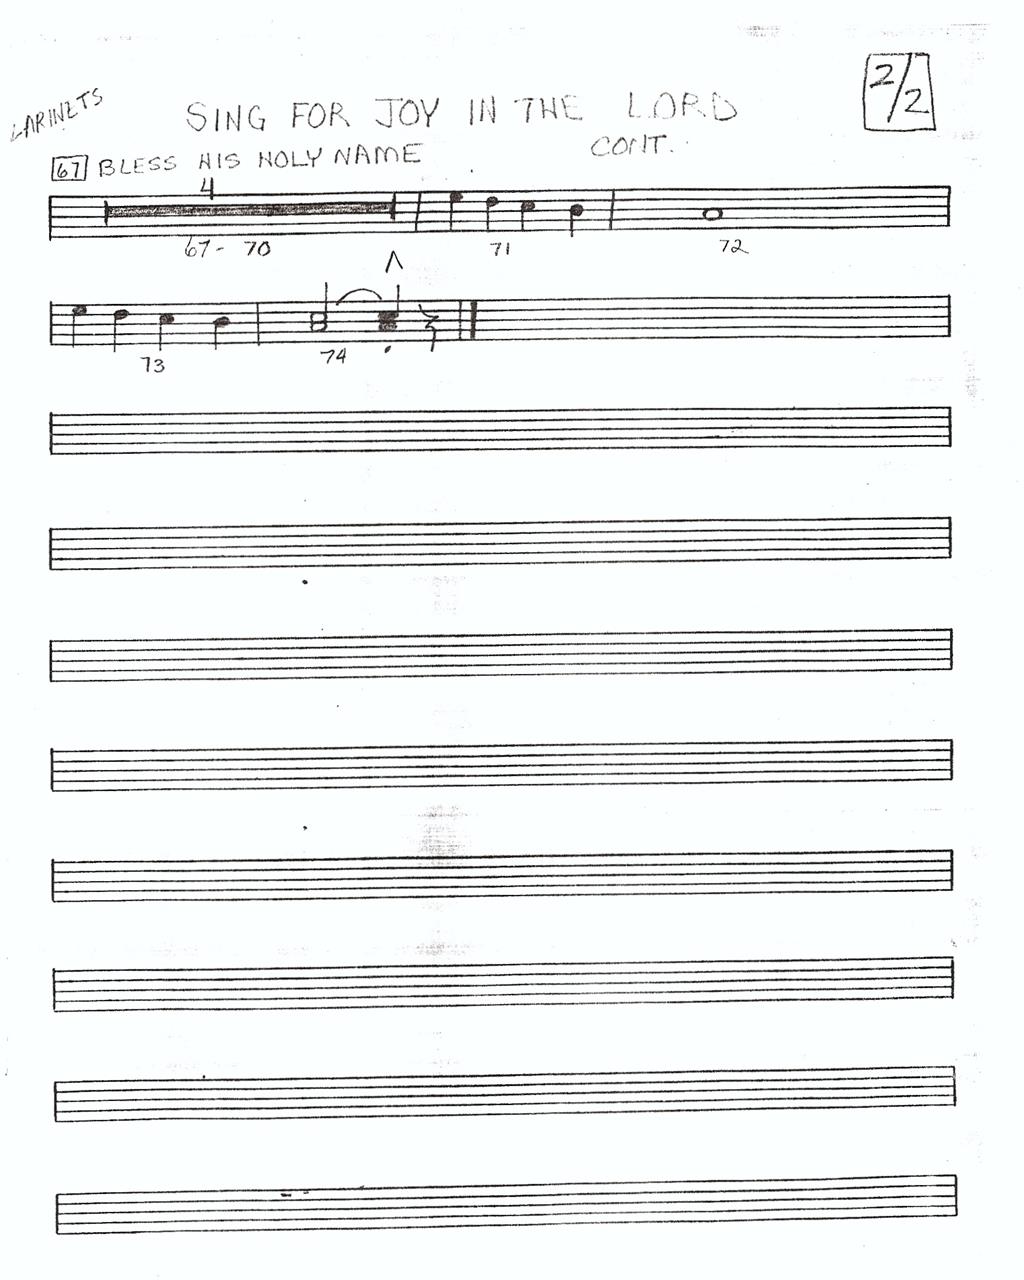 LARINETS
SING FOR JOY IN THE LORD
2/2
CONT.
67 BLESS HIS HOLY NAME
4
67- 70
71
72
73
74